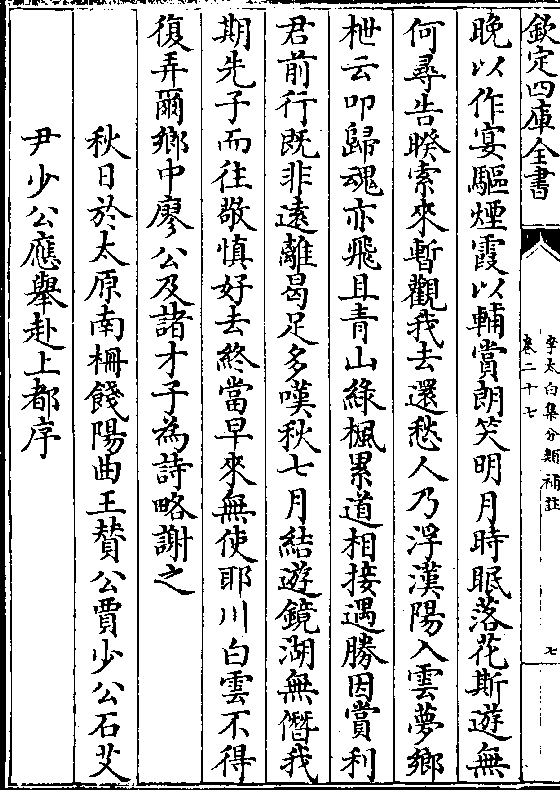 欽定四庫全書
李太白集分類補註
卷二十七
七
晚以作宴驅煙霞以輔賞朗笑明月時眠落花斯遊無
何尋告睽索來暫觀我去還愁人乃浮漢陽入雲夢鄉
枻云叩歸魂亦飛且青山綠楓累道相接遇勝因賞利
君前行既非遠離曷足多嘆秋七月結遊鏡湖無僭我
期先子而往敬慎好去終當早來無使耶川白雲不得
復弄爾鄉中廖公及諸才子為詩略謝之
秋日於太原南柵餞陽曲王贊公賈少公石艾
尹少公應舉赴上都序